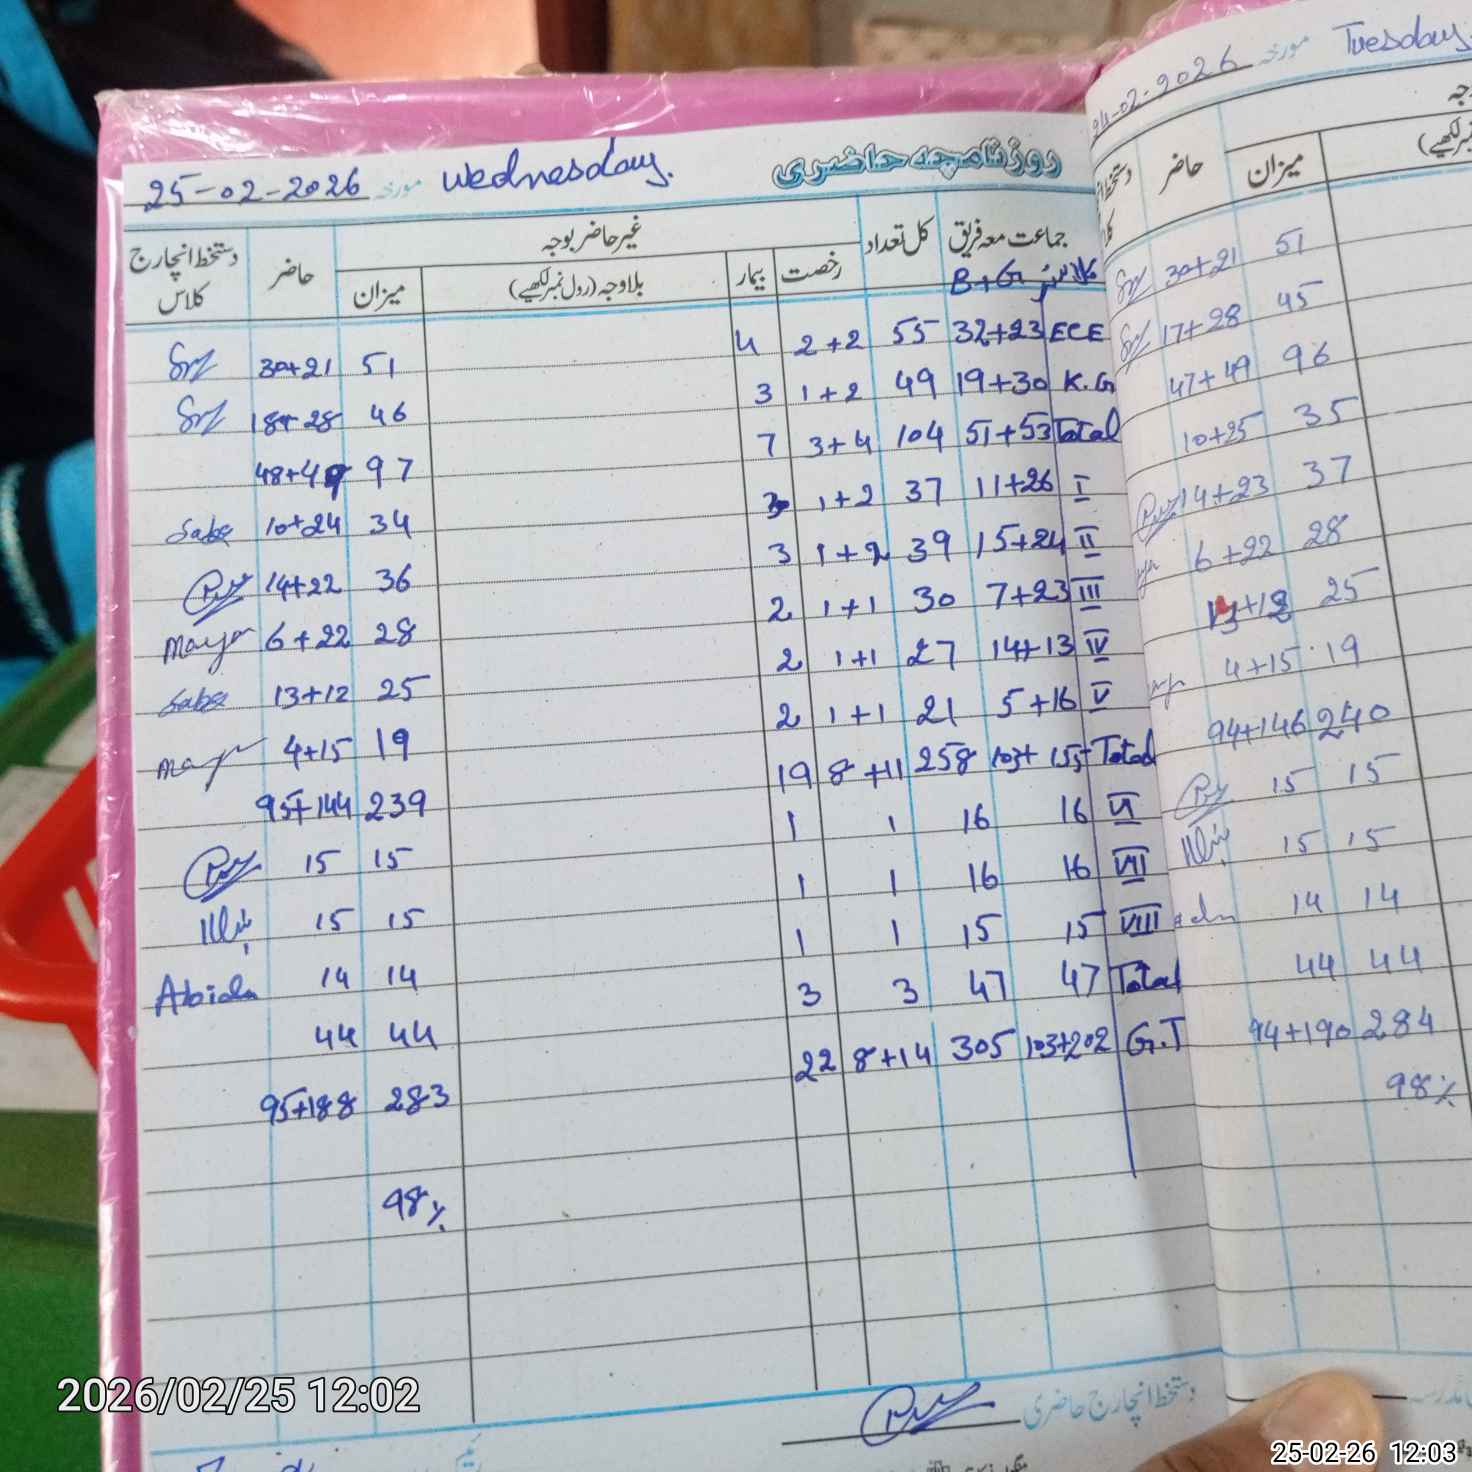 روزنامچہ حاضری Wednesday. مورخہ 25-02-2026
جماعت معہ فریق کل تعداد غیر حاضر بوجہ حاضر دستخط انچارج کلاس
کلاسز B+G رخصت بیمار بلاوجہ (رول نمبر لکھیے) میزان
ECE 32+23 55 2+2 4 51 30+21
K.G 19+30 49 1+2 3 46 18+28
Total 51+53 104 3+4 7 97 48+49
I 11+26 37 1+2 3 34 10+24 Saba
II 15+24 39 1+2 3 36 14+22
III 7+23 30 1+1 2 28 6+22
IV 14+13 27 1+1 2 25 13+12 Saba
V 5+16 21 1+1 2 19 4+15
Total 103+155 258 8+11 19 239 95+144
VI 16 16 1 1 15 15
VII 16 16 1 1 15 15
VIII 15 15 1 1 14 14 Abida
Total 47 47 3 3 44 44
G.T 103+202 305 8+14 22 283 95+188
98%
دستخط انچارج حاضری
Tuesday مورخہ 24-02-2026
میزان حاضر
51 30+21
45 17+28
96 47+49
35 10+25
37 14+23
28 6+22
25
19 4+15
240 94+146
15 15
15 15
14 14
44 44
284 94+190
98%
2026/02/25 12:02
25-02-26 12:03